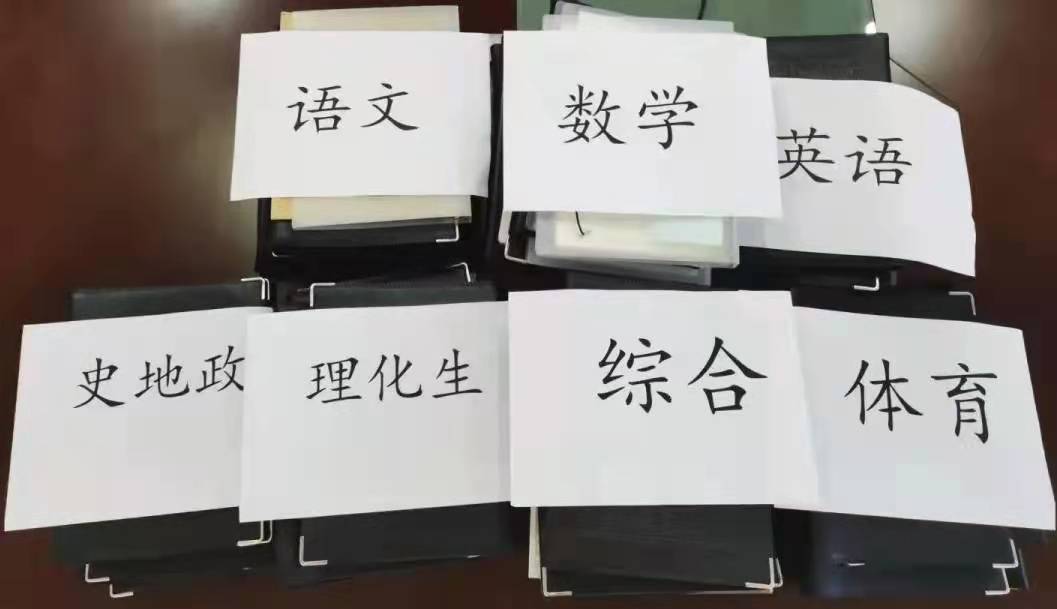 语文
数学
英语
史地政
理化生
综合
体育